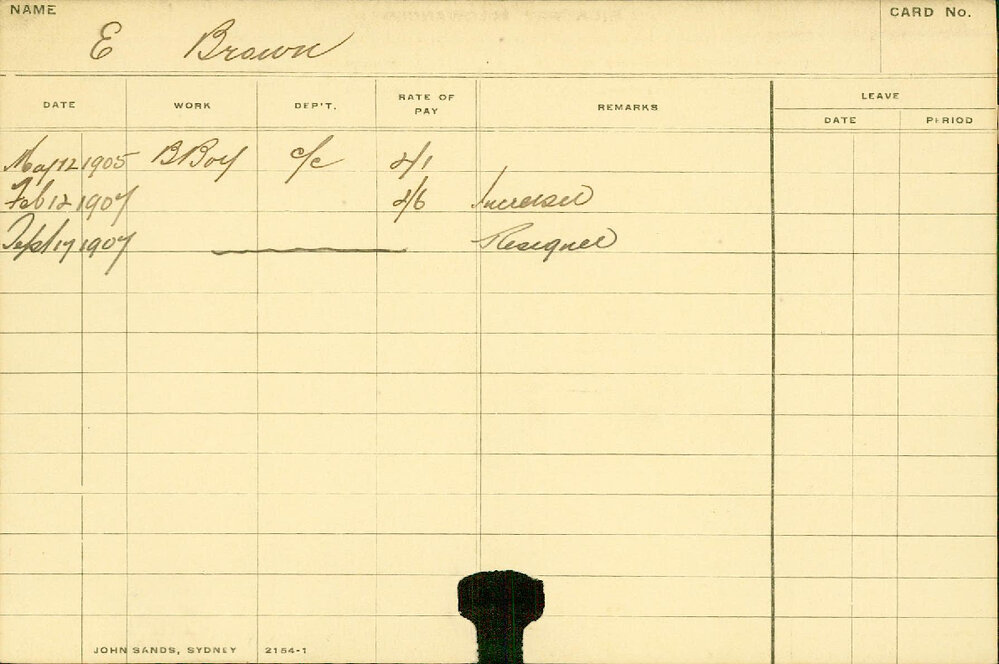 NAME
CARD No.
E Brown
DATE WORK DEP'T. RATE OF PAY REMARKS LEAVE
DATE PERIOD
May 12 1905 B Boy c/c 2/1
Feb 12 1907 2/6 Increased
Sept 17 1907 Resigned
JOHN SANDS, SYDNEY 2154-1